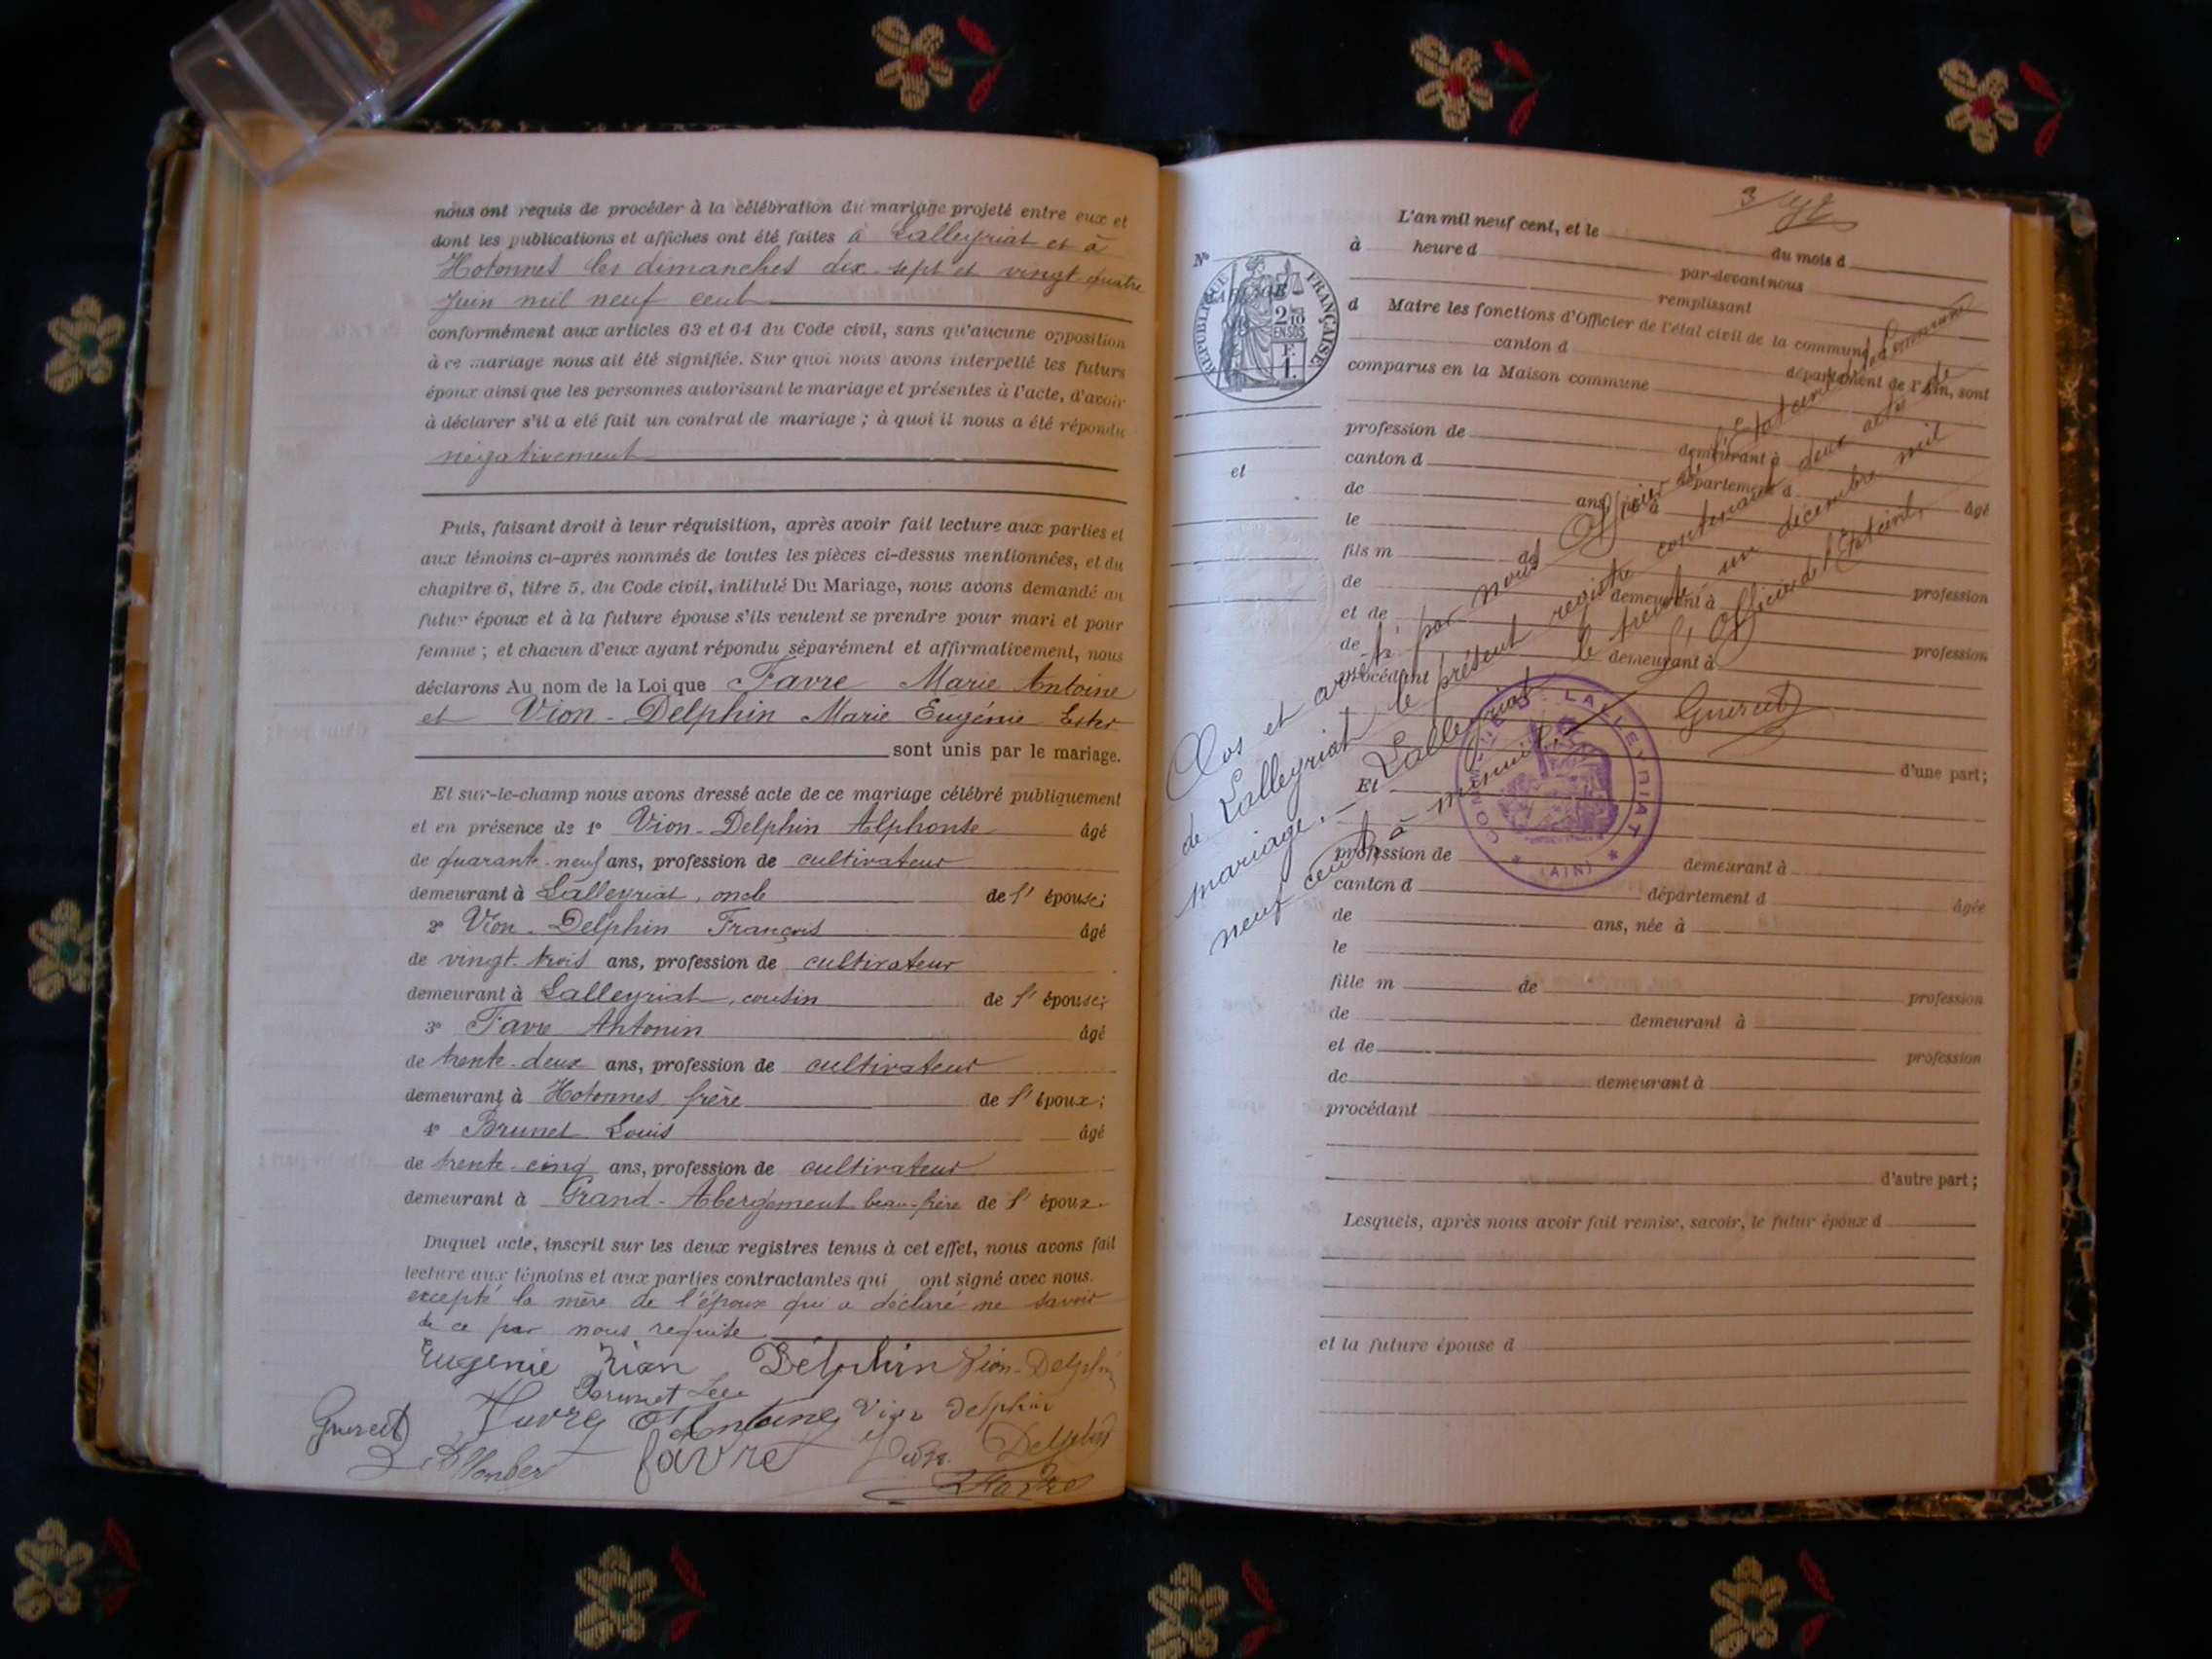 nous ont requis de procéder à la célébration du mariage projeté entre eux et
dont les publications et affiches ont été faites à Lalleyriat et à
Hotonnes les dimanches dix-sept et vingt quatre
Juin mil neuf cent
conformément aux articles 63 et 64 du Code civil, sans qu'aucune opposition
à ce mariage nous ait été signifiée. Sur quoi nous avons interpellé les futurs
époux ainsi que les personnes autorisant le mariage et présentes à l'acte, d'avoir
à déclarer s'il a été fait un contrat de mariage ; à quoi il nous a été répondu
négativement
Puis, faisant droit à leur réquisition, après avoir fait lecture aux parties et
aux témoins ci-après nommés de toutes les pièces ci-dessus mentionnées, et du
chapitre 6, titre 5, du Code civil, intitulé Du Mariage, nous avons demandé au
futur époux et à la future épouse s'ils veulent se prendre pour mari et pour
femme ; et chacun d'eux ayant répondu séparément et affirmativement, nous
déclarons Au nom de la Loi que Favre Marie Antoine
et Vion-Delphin Marie Eugénie Ester
sont unis par le mariage.
Et sur-le-champ nous avons dressé acte de ce mariage célébré publiquement
et en présence de 1° Vion-Delphin Alphonse âgé
de quarante-neuf ans, profession de cultivateur
demeurant à Lalleyriat, oncle de l'épouse;
2° Vion-Delphin François âgé
de vingt-trois ans, profession de cultivateur
demeurant à Lalleyriat, cousin de l'épouse;
3° Favre Antonin âgé
de trente-deux ans, profession de cultivateur
demeurant à Hotonnes frère de l'époux;
4° Brunet Louis âgé
de trente-cinq ans, profession de cultivateur
demeurant à Grand-Abergement beau-frère de l'époux.
Duquel acte, inscrit sur les deux registres tenus à cet effet, nous avons fait
lecture aux témoins et aux parties contractantes qui ont signé avec nous.
excepté la mère de l'époux qui a déclaré ne savoir
de ce par nous requise
Eugenie Vion Delphin Vion-Delphin
Brunet
Favre Antoine Vion Delphin
Guerett favre Delphin
L'an mil neuf cent, et le du mois d
N° à heure d par-devant nous
remplissant
RÉPUBLIQUE FRANÇAISE
2/10 EN SUS
F. 1.
d Maire les fonctions d'Officier de l'état civil de la commune
canton d département de l'Ain, sont
comparus en la Maison commune
profession de demeurant à
et canton d département d âgé
de ans, né à
le
fils m de
de demeurant à profession
et de
de demeurant à profession
procédant
d'une part;
Et
profession de demeurant à
canton d département d âgée
de ans, née à
le
fille m de profession
de demeurant à
et de profession
de demeurant à
procédant
d'autre part ;
Lesquels, après nous avoir fait remise, savoir, le futur époux d
et la future épouse d
Clos et arrêté par nous Officier de l'Etat civil de la commune
de Lalleyriat le présent registre contenant deux actes de
mariage. Lalleyriat le trente-un décembre mil
neuf cent à minuit.
L'Officier de l'Etat civil,
Guerett
COMMUNE DE LALLEYRIAT
(AIN)